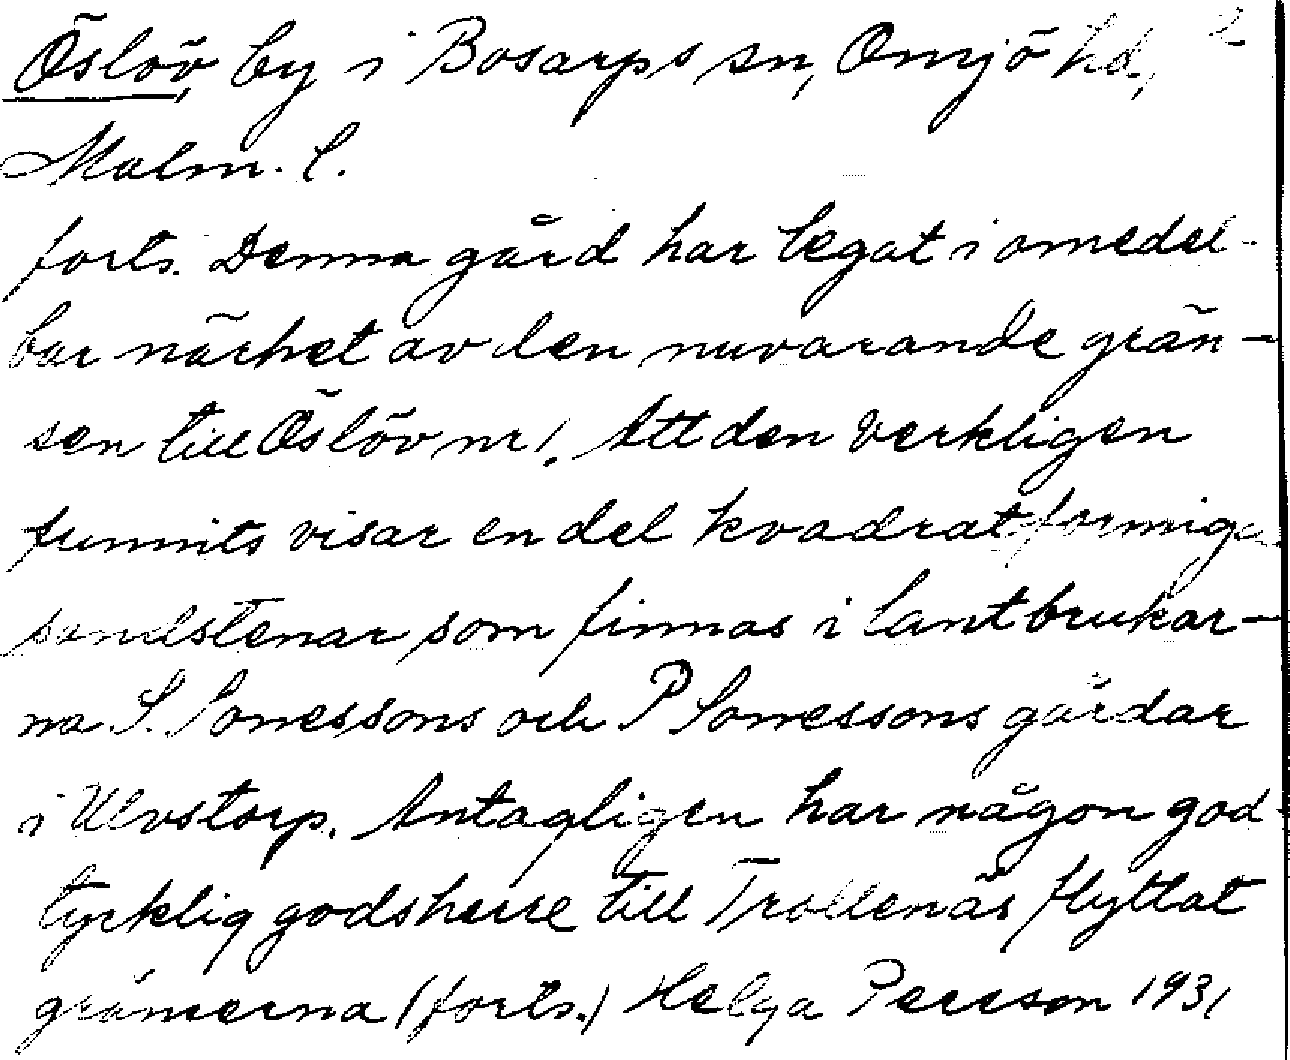 Öslöv, by i Bosarps sn, Onsjö hd, 2
Malm. l.
forts. Denna gård har legat i omedel-
bar närhet av den nuvarande grän-
sen till Öslöv nr 1. Att den verkligen
funnits visar en del kvadratformiga
sandstenar som finnas i lantbrukar-
na S. Sonessons och P Sonessons gårdar
i Ulvstorp. Antagligen har någon god-
tycklig godsherre till Trollenäs flyttat
gränserna (forts.) Helga Persson 1931